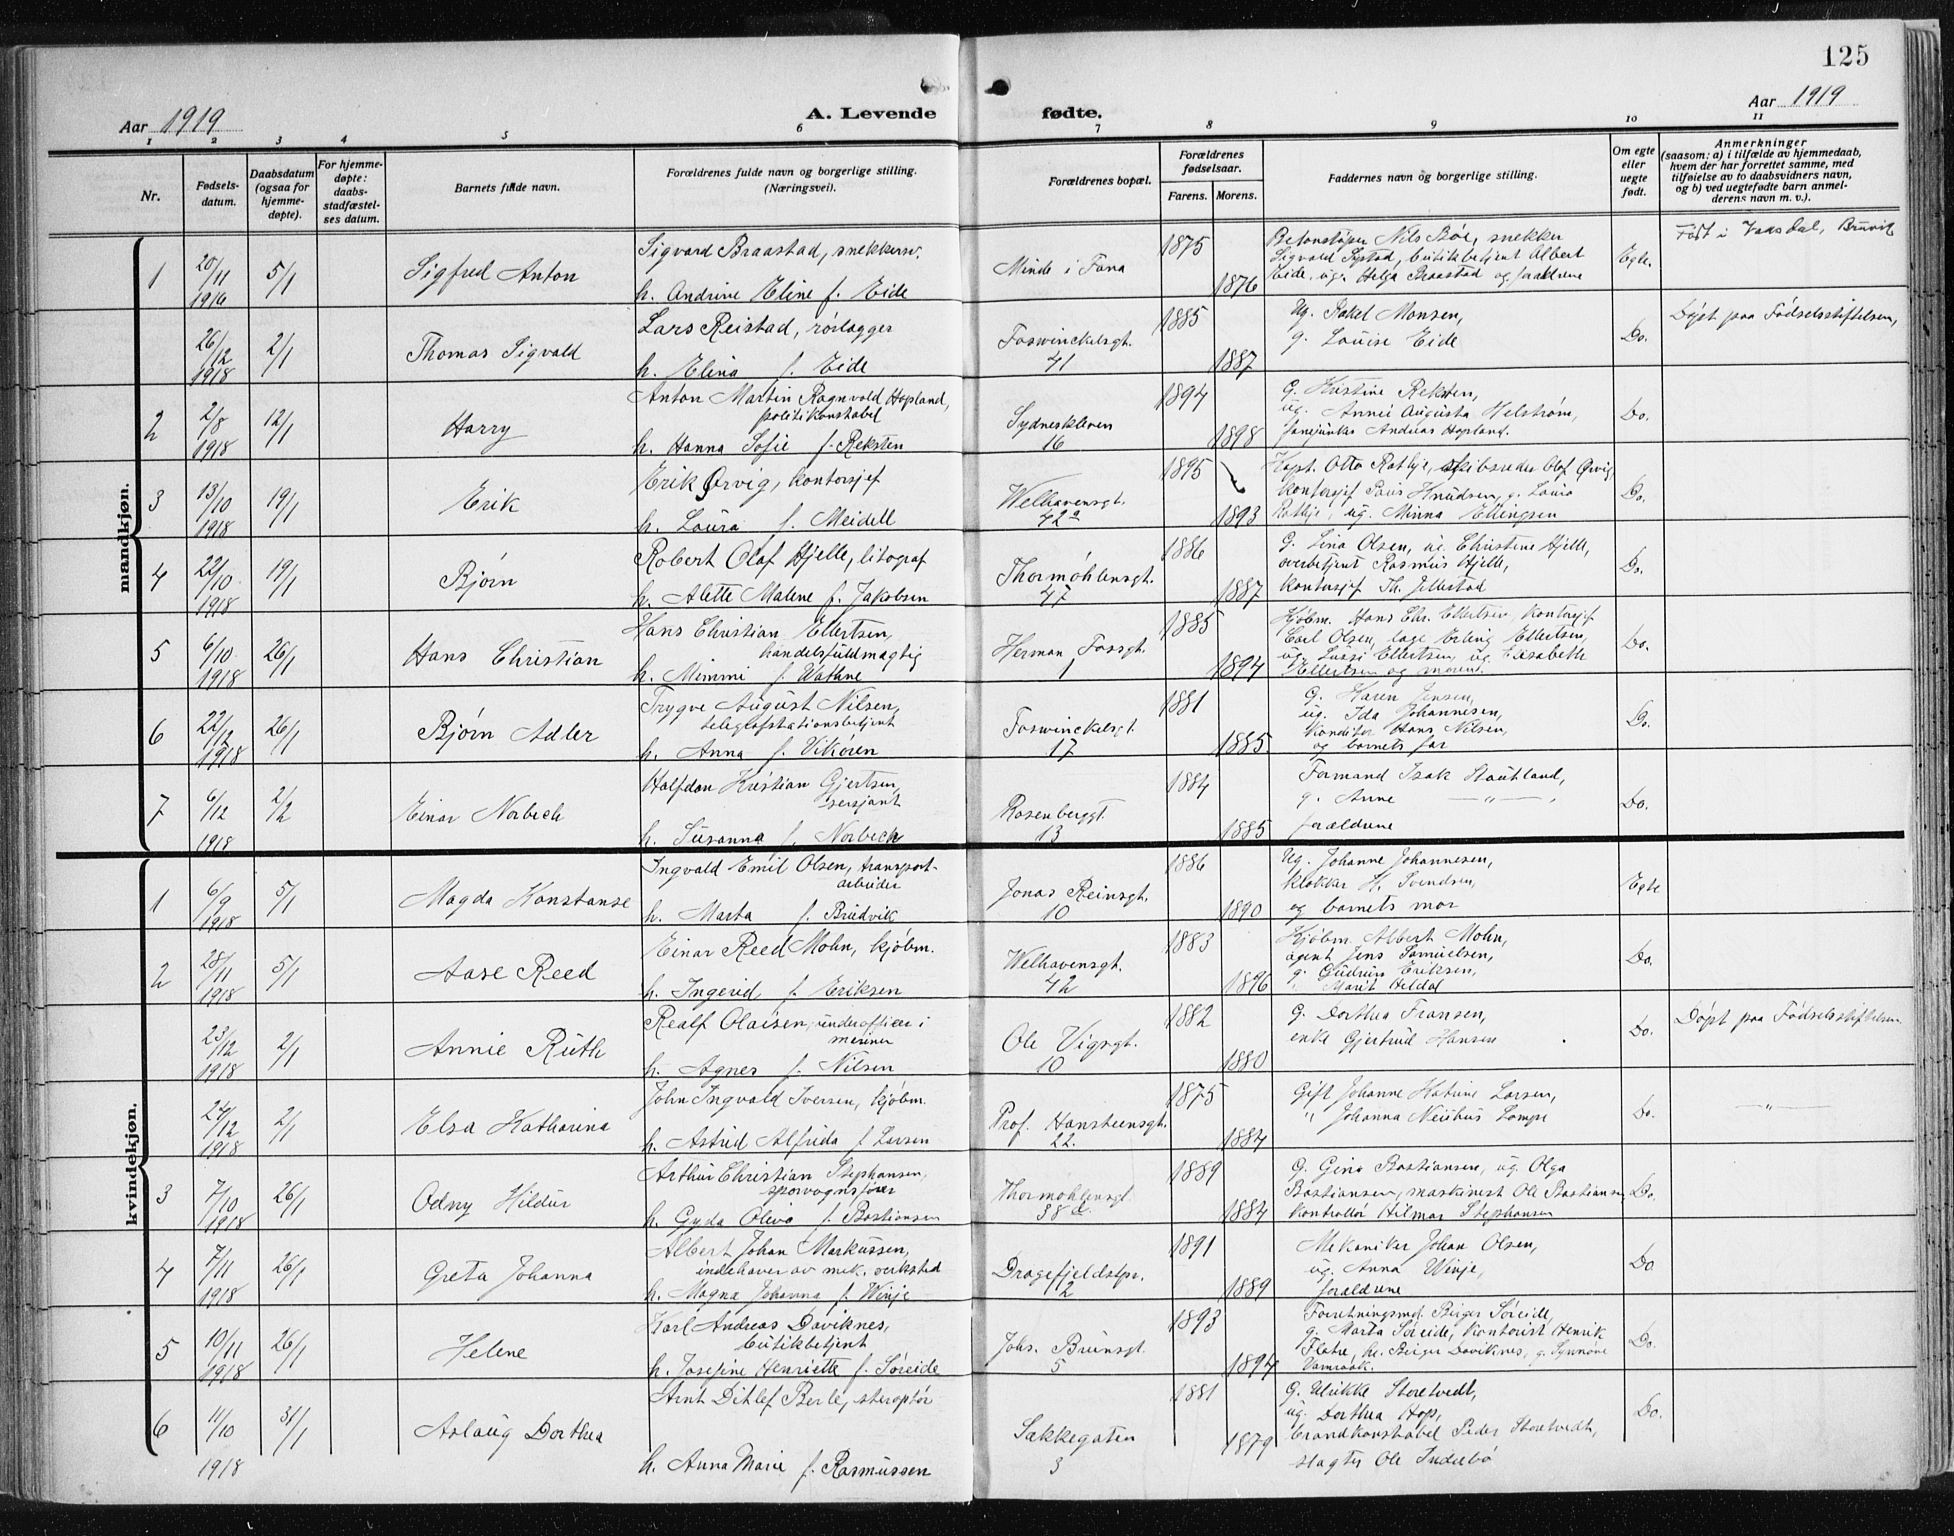 125
Aar 1919
A. Levende
fødte.
Aar 1919
1 2 3 4 5 6 7 8 9 10 11
Nr.
Fødsels-
datum.
Daabsdatum
(ogsaa for
hjemme-
døpte).
For hjemme-
døpte:
daabs-
stadfæstel-
ses datum.
Barnets fulde navn.
Forældrenes fulde navn og borgerlige stilling.
(Næringsvei).
Forældrenes bopæl.
Forældrenes
fødselsaar.
Farens. Morens.
Faddernes navn og borgerlige stilling.
Om egte
eller
uegte
født.
Anmerkninger
(saasom: a) i tilfælde av hjemmedaab,
hvem der har forrettet samme, med
tilføielse av to daabsvidners navn,
og b) ved uegtefødte barn anmel-
derens navn m. v.).
mandkjøn.
1 20/11 1916 5/1 Sigfred Anton
Sigvard Braastad, snekkersv.
h. Andrine Eline f. Eide
Minde i Fana 1875 1876
Betonstøper Nils Bøe, snekker
Sigvald Systad, butikbetjent Albert
Eide, ug. Helga Braastad og forældrene
Egte.
Født i Vaksdal, Bruvik
26/12 1918 2/1 Thomas Sigvald
Lars Reistad, rørlægger
h. Elina f. Eide
Foswinckelsgt. 41 1885 1887
Ug. Rakel Monsen,
g. Louise Eide
Do.
Døpt paa Fødselsstiftelsen,
2 2/8 1918 12/1 Harry
Anton Martin Ragnvald Hopland,
politikonstabel
h. Hanna Sofie f. Reksten
Sydneskleven 16 1894 1898
G. Kristine Reksten,
ug. Annie Augusta Helstrøm,
fanejunker Andreas Hopland.
Do.
3 13/10 1918 19/1 Erik
Erik Ørvig, kontorsjef
h. Laura f. Meidell
Welhavensgt. 42a 1895 1893
Kapt. Otto Rathje, skibsreder Olaf Ørvig,
kontorsjef Knudsen, g. Laura
Rathje, ug. Minna Ellingsen
Do.
4 22/10 1918 19/1 Bjørn
Robert Olaf Hjelle, litograf
h. Alette Malene f. Jakobsen
Thormøhlensgt. 47 1886 1887
G. Lina Olsen, ug. Christine Hjelle,
overbetjent Rasmus Hjelle,
kontorsjef Th. Jellestad
Do.
5 6/10 1918 26/1 Hans Christian
Hans Christian Ellertsen,
handelsfuldmægtig
h. Mimmi f. Wathne
Herman Fossgt. 1 1885 1894
Kjøbm. Hans Chr. Ellertsen, kontorsjef
Carl Olsen, læge Erling Ellertsen,
ug. Lussi Ellertsen, ug. Elisabeth
Ellertsen og moren.
Do.
6 22/12 1918 26/1 Bjørn Adler
Trygve August Nilsen,
telegrafstationsbetjent
h. Anna f. Vikøren
Foswinckelsgt. 17 1881 1885
G. Karen Jensen,
ug. Ida Johannesen,
Konditor Hans Nilsen,
og barnets far
Do.
7 6/12 1918 2/2 Einar Norbech
Halfdan Kristian Gjertsen,
sersjant
h. Susanna f. Norbech
Rosenberggt. 13 1884 1885
Formand Isak Stautland,
g. Anne — " — ,
forældrene
Do.
kvindekjøn.
1 6/9 1918 5/1 Magda Konstanse
Ingvald Emil Olsen, transport-
arbeider
h. Marta f. Brudvik
Jonas Reinsgt. 10 1886 1890
Ug. Johanne Johannesen,
klokker H. Svendsen,
og barnets mor
Egte
2 28/11 1918 5/1 Aase Reed
Einar Reed Mohn, kjøbm.
h. Ingerid f. Eriksen
Welhavensgt. 42 1883 1896
Kjøbm. Albert Mohn,
agent Jens Samuelsen,
g. Gudrun Eriksen,
" Marit Heldal
Do.
23/12 1918 2/1 Annie Ruth
Realf Olaisen, underofficer i
marinen
h. Agnes f. Nilsen
Ole Vigsgt. 10 1882 1880
G. Dorthea Fransen,
enke Gjertrud Hansen
Do.
Døpt paa Fødselsstiftelsen.
27/12 1918 2/1 Elsa Katharina
John Ingvald Iversen, kjøbm.
h. Astrid Alfrida f. Larsen
Prof. Hansteensgt. 22. 1875 1884
Gift Johanne Katrine Larsen,
" Johanna Neuhus Lampe
Do.
— " —
3 7/10 1918 26/1 Odny Hildur
Arthur Christian Stephansen,
sporvognsfører
h. Gyda Oliva f. Bastiansen
Thormøhlensgt. 38 1889 1884
G. Gina Bastiansen, ug. Olga
Bastiansen, maskinist Ole Bastiansen
kontrollør Hilmar Stephansen
Do.
4 7/11 1918 26/1 Greta Johanna
Albert Johan Markussen,
indehaver av mek. verksted
h. Magna Johanna f. Winje
Dragefjeldstpr. 2 1891 1889
Mekaniker Johan Olsen,
ug. Anna Winje,
forældrene
Do
5 10/11 1918 26/1 Helene
Karl Andreas Daviknes,
butikbetjent
h. Josefine Henriette f. Søreide
Johs. Brunsgt. 5 1893 1894
Forretningsmd. Birger Søreide,
g. Marta Søreide, kontorist Henrik
Flotre, hr. Birger Daviknes, g. Synnøve
Do.
6 11/10 1918 31/1 Aslaug Dorthea
Arnt Ditlef Berle, steroptør
h. Anna Marie f. Rasmussen
Sakkegaten 3 1881 1879
G. Ulrikke Storetvedt,
ug. Dorthea Hop,
brandkonstabel Peder Storetvedt,
slagter Ole Indrebø
Do.